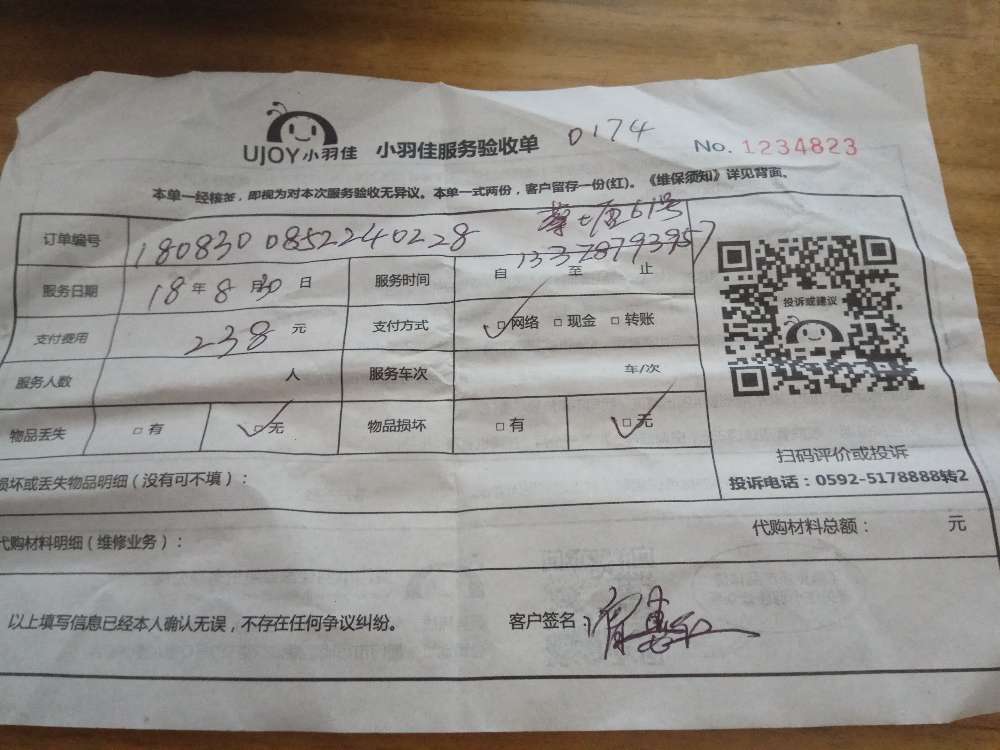 UJOY小羽佳 小羽佳服务验收单 0174 No. 1234823
本单一经核签，即视为对本次服务验收无异议。本单一式两份，客户留存一份(红)。《维保须知》详见背面。
订单编号 180830 0852240228 61号
服务日期 18 年 8 月 30 日 服务时间 自 至 止
支付费用 238 元 支付方式 □网络 □现金 □转账
服务人数 人 服务车次 车/次
物品丢失 □有 □无 物品损坏 □有 □无
投诉或建议
扫码评价或投诉
投诉电话：0592-5178888转2
损坏或丢失物品明细（没有可不填）：
代购材料明细（维修业务）： 代购材料总额： 元
以上填写信息已经本人确认无误，不存在任何争议纠纷。 客户签名：